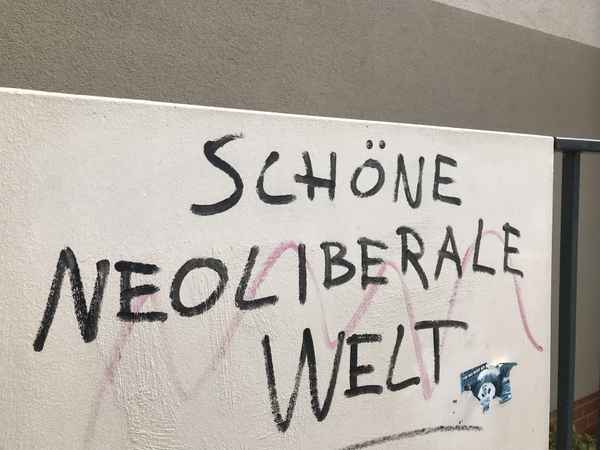 SCHÖNE
NEOLIBERALE
WELT